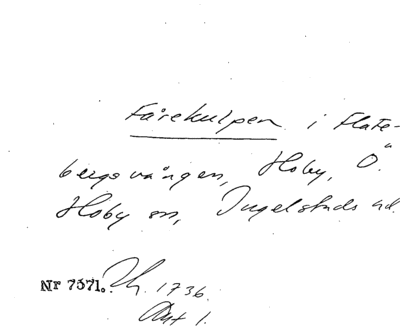 Fårekulpen i Flate-
bergsvången, Hoby, Ö.
Hoby sn, Ingelstads hd.
Nr 7371. 1736.
Akt 1.